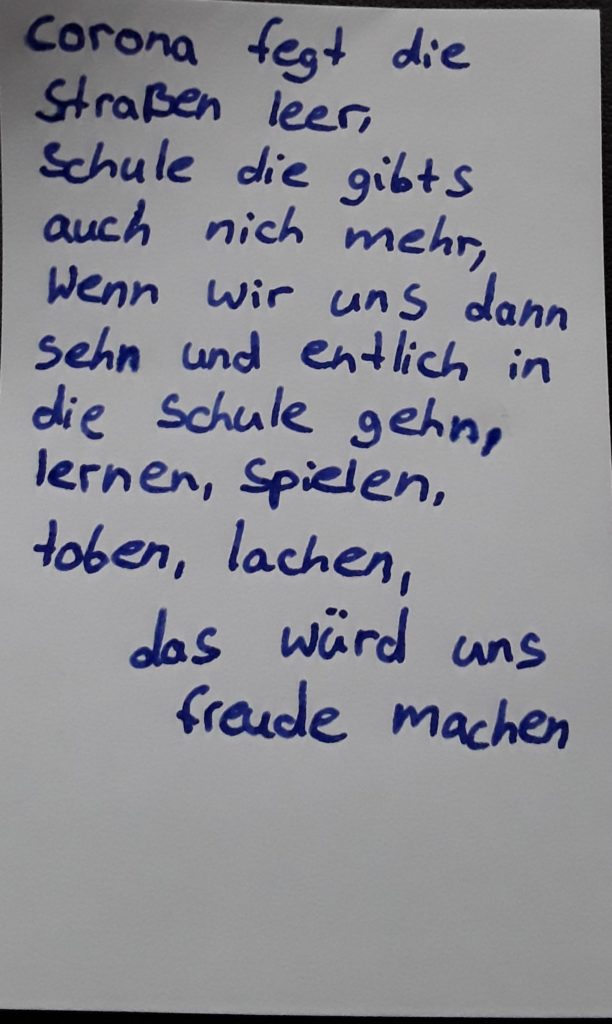 Corona fegt die
Straßen leer,
Schule die gibts
auch nich mehr,
Wenn wir uns dann
sehn und entlich in
die Schule gehn,
lernen, spielen,
toben, lachen,
das würd uns
freude machen